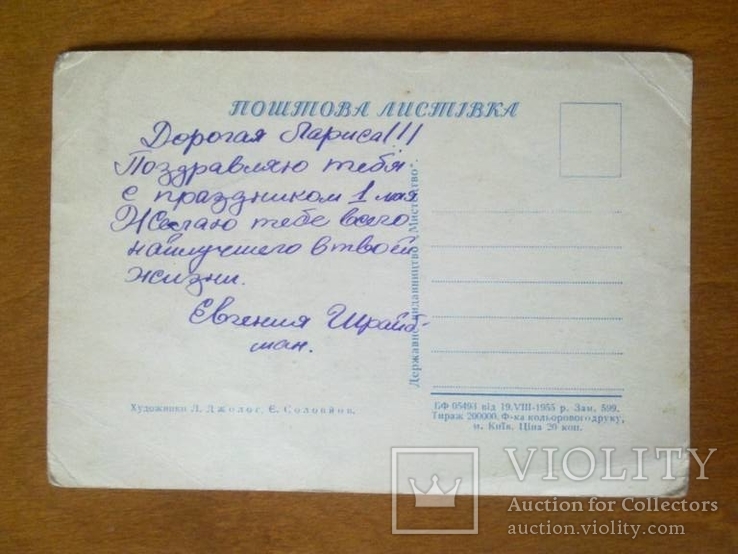 ПОШТОВА ЛИСТІВКА
Дорогая Лариса!!!
Поздравляю тебя
с праздником 1 мая
Желаю тебе всего
наилучшего в твоей
жизни.
Евгения Шрайб-
ман.
Державне видавництво „Мистецтво".
Художники Л. Джолос, Є. Соловйов.
БФ 05493 від 19.VIII-1955 р. Зам. 599.
Тираж 200000. Ф-ка кольорового друку,
м. Київ. Ціна 20 коп.
VIOLITY
Auction for Collectors
auction.violity.com